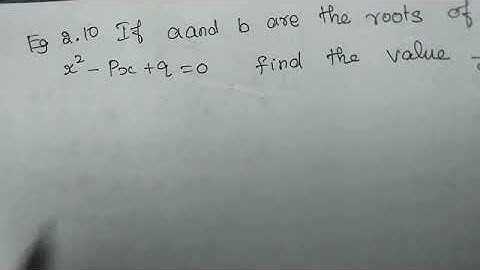 Eg 2.10 If a and b are the roots of
x² - Px + q = 0 find the value